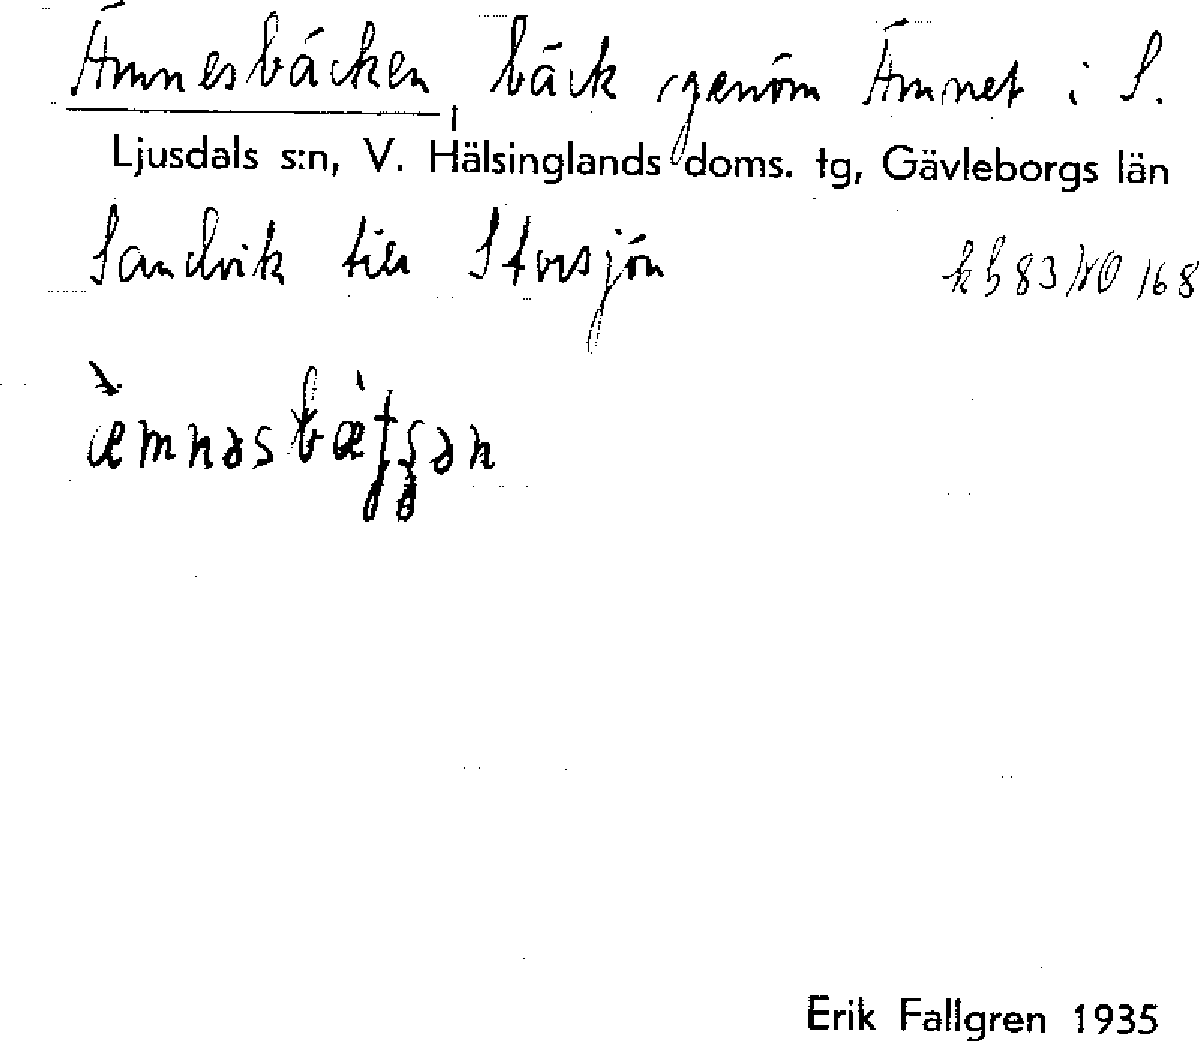 Ämnesbäcken, bäck genom Ämnet i S.
Ljusdals s:n, V. Hälsinglands doms. tg, Gävleborgs län
Sandvik till Storsjön kb 83 NO 168
Erik Fallgren 1935